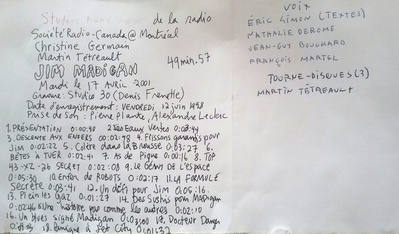 de la radio
Société Radio-Canada @ Montréal
Christine Germain
Martin Tétreault
49 min. 57
JIM MADIGAN
Mardi le 17 AVRIL 2001
Gravure: Studio 30 (Denis Frenette)
Date d'enregistrement: VENDREDI 12 juin 1998
Prise de Son: Pierre Plante, Alexandre Leclerc
1. PRÉSENTATION 0:00:48 2. Les Eaux vertes 0:03:44
3. DESCENTE AUX ENFERS 00:02:48 4. Frissons garantis pour
Jim 0:02:22 5. Colère dans la Brousse 0:03:27 6.
BÊTES à TUER 0:02:41 7. As de Pique 0:00:16 8. TOP
SECRET 0:02:08 9. Le GÉNIE DE L'ESPACE
0:05:30 10. L'enfer des ROBOTS 0:02:17 11. LA FORMULE
Secrète 0:03:41 12. Un défi pour Jim 0:05:16
13. Plein les gaz 0:01:27 14. Des Sushis pour MADIGAN
Une histoire pas comme les autres 0:02:10
16. Un blues signé Madigan 0:03:50 17. Docteur Danger
18. Panique à Pet City 0:01:32
VOIX
ÉRIC SIMON (TEXTES)
NATHALIE DEROME
JEAN-GUY BOUCHARD
FRANÇOIS MARTEL
TOURNE-DISQUES (3)
MARTIN TÉTREAULT